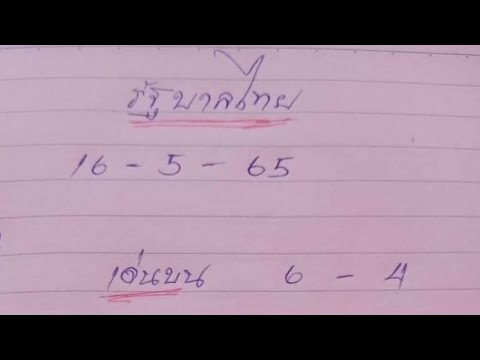 รัฐบาลไทย
16 - 5 - 65
เด่นบน 6 - 4